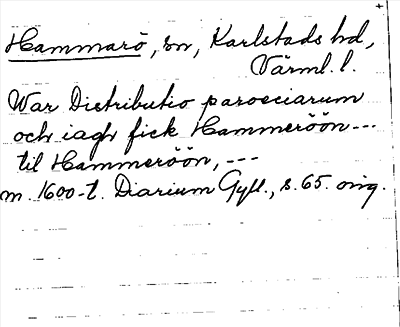 Hammarö, sn, Karlstads hd,
Värml. l.
War Distributio paroeciarum
och iagh fick Hammeröön---
til Hammeröön, ---
m. 1600-t. Diarium Gyll., s. 65. orig.